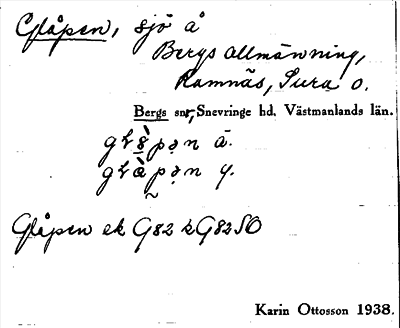 Glåpen, sjö å
Bergs allmänning,
Ramnäs, Sura o.
Bergs snr, Snevringe hd. Västmanlands län.
ä.
y.
Glåpen ek G82 k G82 SO
Karin Ottosson 1938.